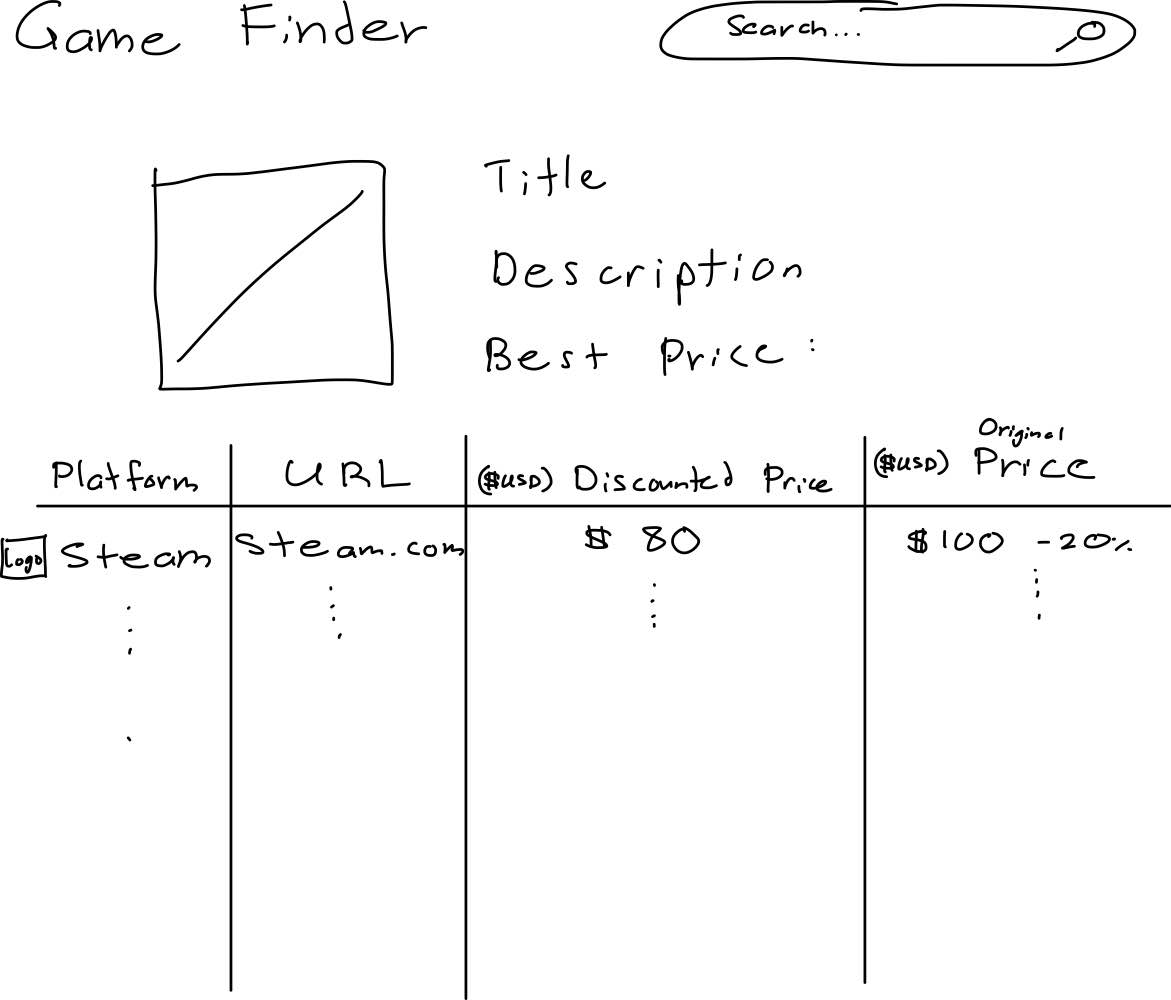 Game Finder
Search...
Title
Description
Best Price :
Platform
URL
($USD) Discounted Price
($USD) Original Price
Logo Steam
Steam.com
$ 80
$100 -20%